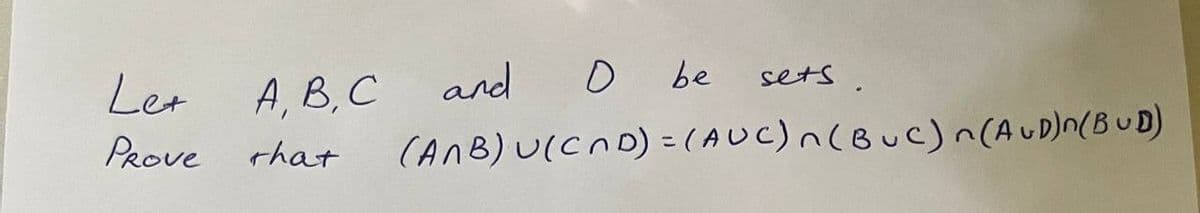 Let A, B, C and D be sets.
Prove that (A∩B)∪(C∩D) = (A∪C)∩(B∪C)∩(A∪D)∩(B∪D)